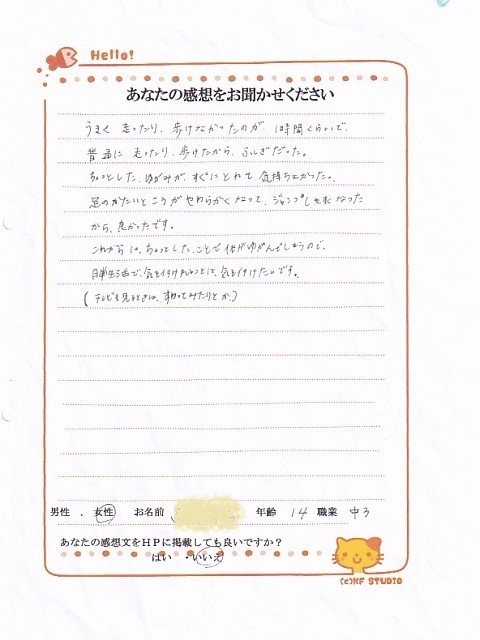 Hello!
あなたの感想をお聞かせください
うまく 走ったり、歩けなかったのが、1時間くらいで、
普通に 走ったり、歩けたから、ふしぎだった。
ちょっとした、ゆがみが、すぐにとれて 気持ちよかった。
足のかたいところがやわらかくなって、ジャンプしやすくなった
から、良かったです。
これからは、ちょっとした、ことで体がゆがんでしまうので、
日常生活で、気を付けれることに、気を付けたいです。
(テレビを見るときは、座ってみたりとか)
男性 . 女性 お名前 年齢 14 職業 中3
あなたの感想文をHPに掲載しても良いですか?
はい ・いいえ
(c)KF STUDIO